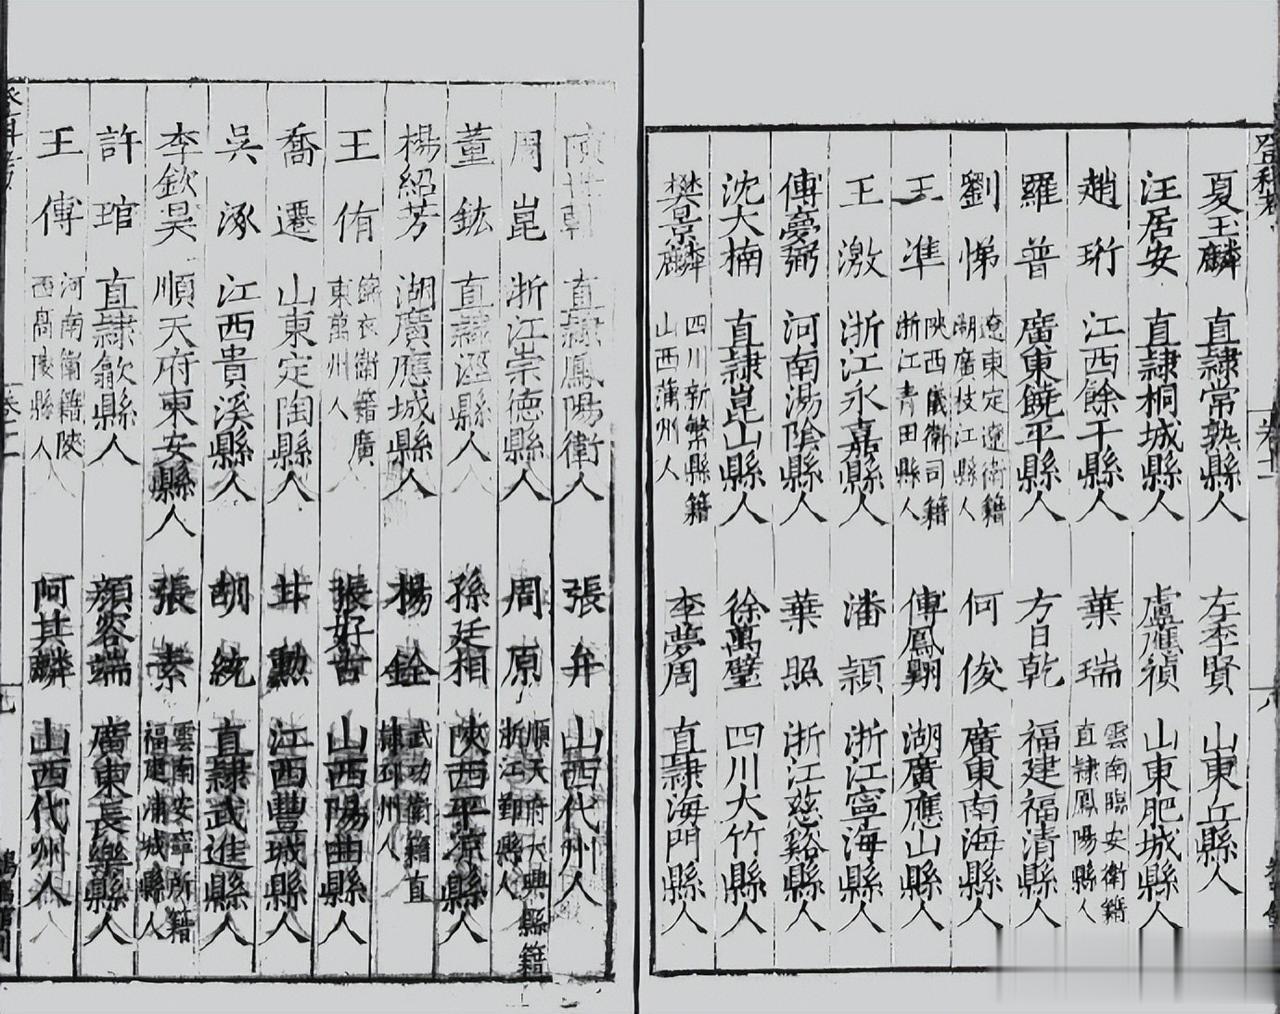 夏玉麟 直隸常熟縣人 左季賢 山東丘縣人
汪居安 直隸桐城縣人 盧應禎 山東肥城縣人
趙珩 江西餘干縣人 葉瑞 雲南臨安衛籍直隸鳳陽縣人
羅普 廣東饒平縣人 方日乾 福建福清縣人
劉悌 遼東定遼衛籍湖廣枝江縣人 何俊 廣東南海縣人
王準 陝西儀衛司籍浙江青田縣人 傅鳳翱 湖廣應山縣人
王激 浙江永嘉縣人 潘穎 浙江寧海縣人
傅夢弼 河南湯陰縣人 葉照 浙江慈谿縣人
沈大楠 直隸崑山縣人 徐萬璧 四川大竹縣人
樊景麟 四川新繁縣籍山西蒲州人 李夢周 直隸海門縣人
直隸鳳陽衛人 張弁 山西代州人
周崑 浙江崇德縣人 周原 順天府大興縣籍浙江鄞縣人
董鈜 直隸涇縣人 孫廷相 陝西平涼縣人
楊紹芳 湖廣應城縣人 楊銓 武功衛籍直隸邳州人
王侑 錦衣衛籍廣東萬州人 張好古 山西陽曲縣人
喬遷 山東定陶縣人 甘勳 江西豐城縣人
吳涿 江西貴溪縣人 胡統 直隸武進縣人
李欽昊 順天府東安縣人 張素 雲南安寧所籍福建浦城縣人
許琯 直隸歙縣人 顏容端 廣東長樂縣人
王傅 河南衛籍陝西高陵縣人 阿其麟 山西代州人